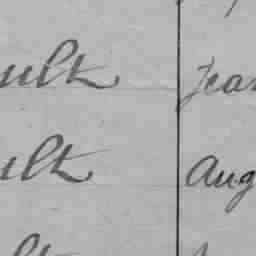 ult Jean
ult Aug